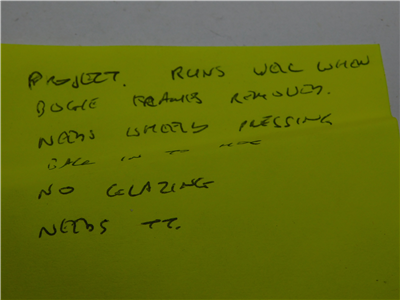 PROJECT. RUNS WELL WHEN
BOGIE FRAMES REMOVED.
NEEDS WHEELS PRESSING
BACK IN TO
NO GLAZING
NEEDS TT.